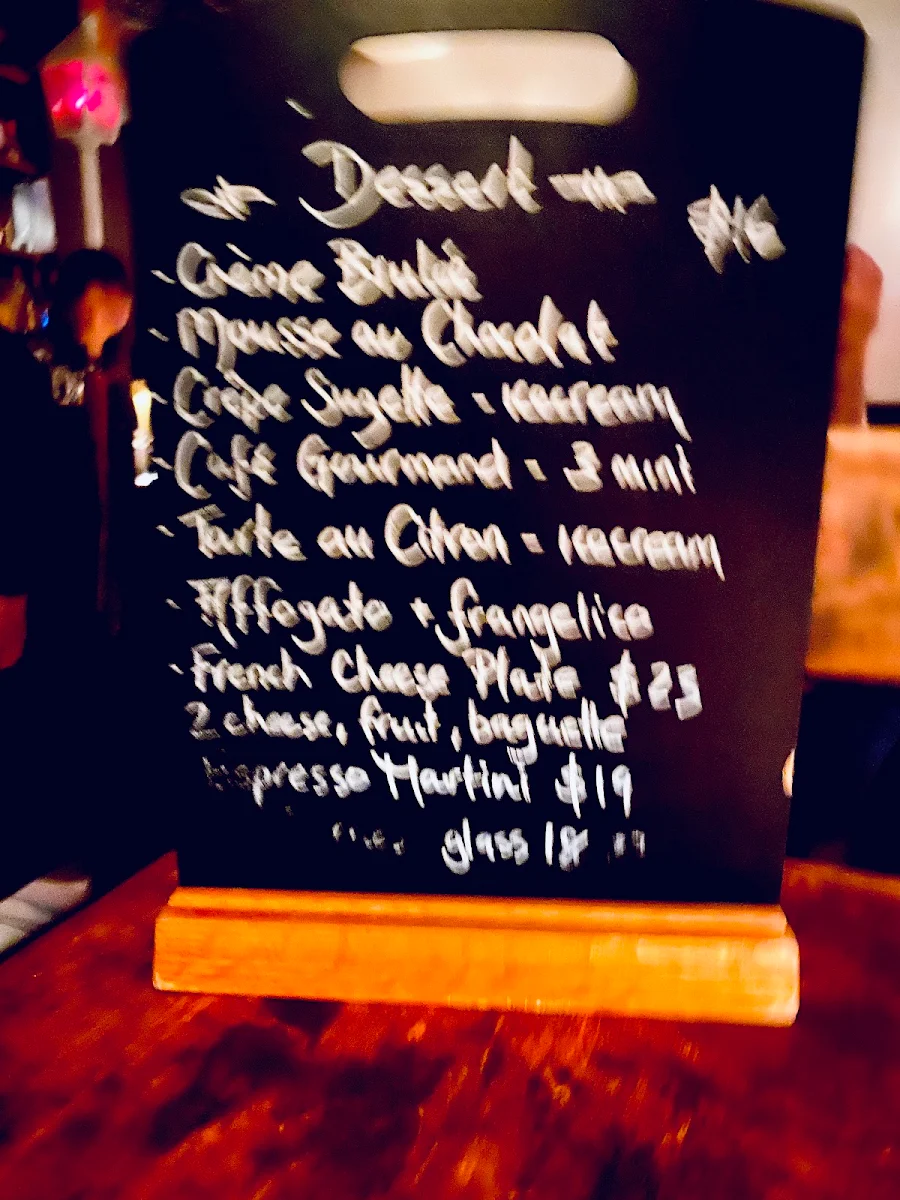 Dessert
- Crème Brulée
- Mousse au Chocolat
- Crêpe Suzette - icecream
- Café Gourmand - 3 mini
- Tarte au Citron - icecream
- Affogato + frangelico
- French Cheese Plate $25
2 cheese, fruit, baguette
Espresso Martini $19
glass